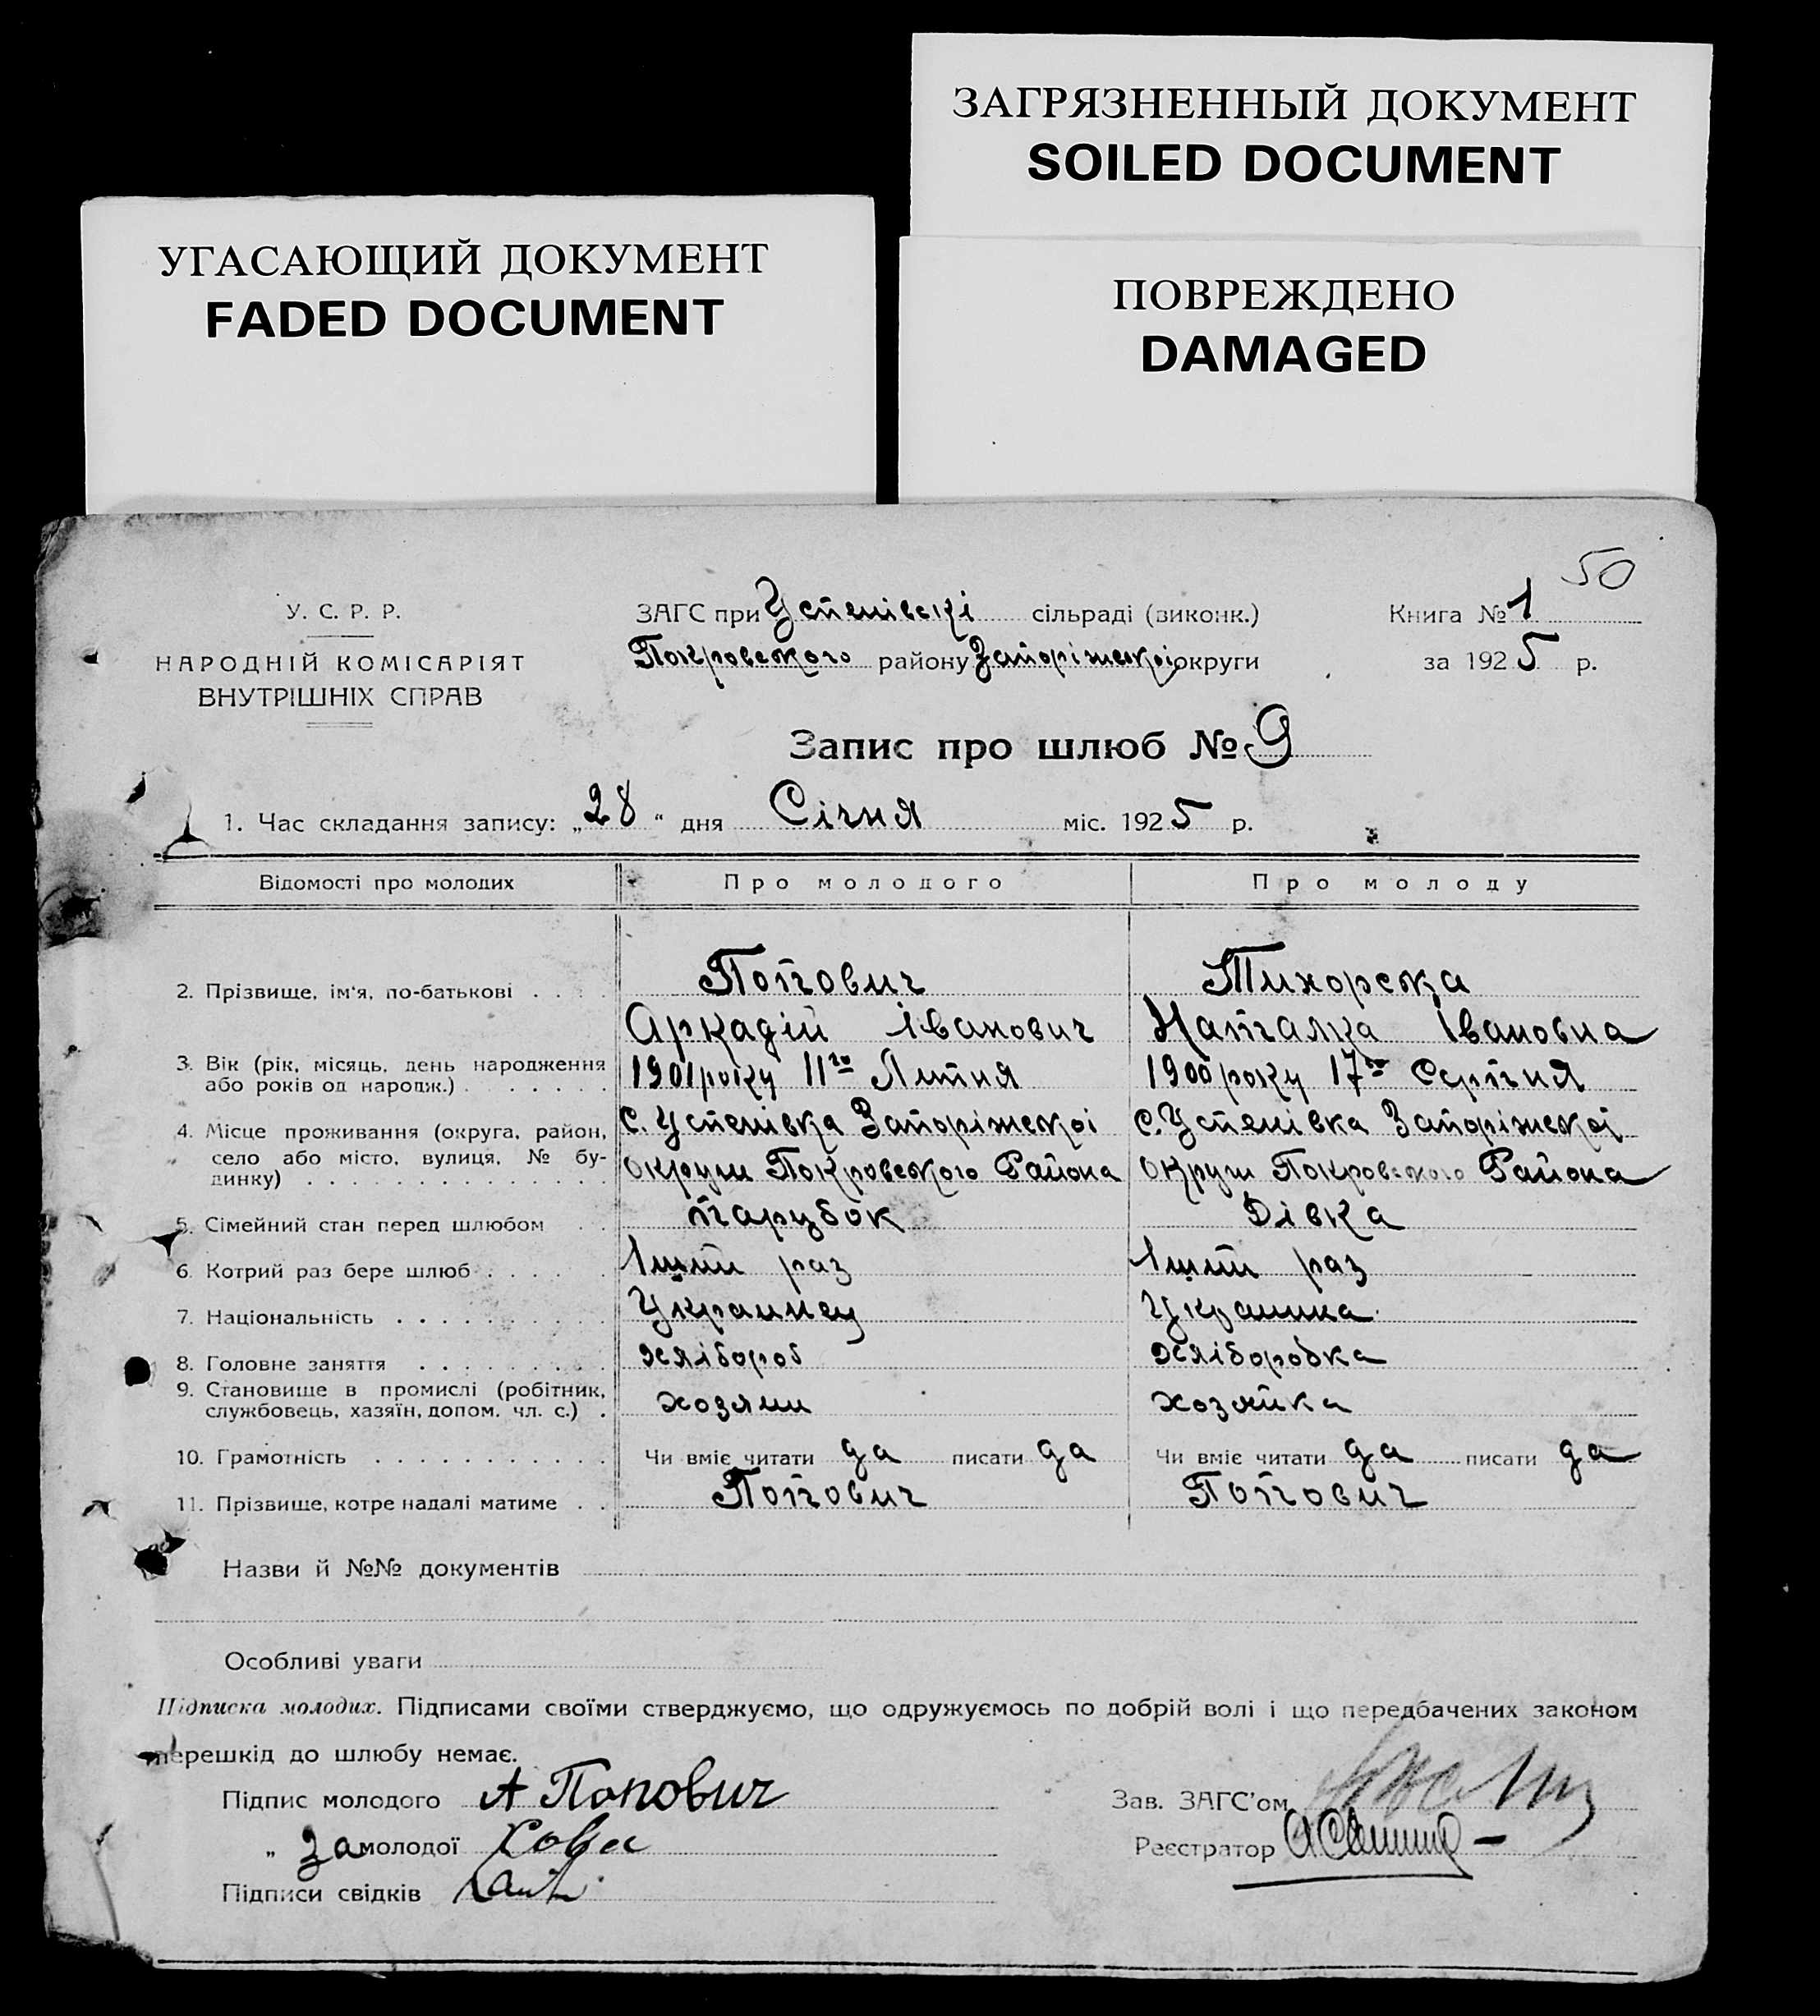 ЗАГРЯЗНЕННЫЙ ДОКУМЕНТ
SOILED DOCUMENT
УГАСАЮЩИЙ ДОКУМЕНТ
FADED DOCUMENT
ПОВРЕЖДЕНО
DAMAGED
50
У. С. Р. Р.
НАРОДНІЙ КОМІСАРІЯТ
ВНУТРІШНІХ СПРАВ
ЗАГС при Успенівскі сільраді (виконк.)
Покровского району Запоріжскоі округи
Книга № 1
за 1925 р.
Запис про шлюб № 9
1. Час складання запису: „28“ дня Січня міс. 1925 р.
Відомості про молодих Про молодого Про молоду
2. Прізвище, ім'я, по-батькові . . . . Попович Тихорска
Аркадій Іванович Наталка Івановна
3. Вік (рік, місяць, день народження 1901 року 11го Лютня 1900 року 17го Серпня
або років од народж.) . . . . . .
4. Місце проживання (округа, район, С. Успенівка Запоріжскоі С. Успенівка Запоріжскоі
село або місто, вулиця, № бу- округи Покровского Района округи Покровского Района
динку) . . . . . . . . . . . . . .
5. Сімейний стан перед шлюбом . . парубок Дівка
6. Котрий раз бере шлюб . . . . . 1ший раз 1ший раз
7. Національність . . . . . . . . . Украинец Украинка
8. Головне заняття . . . . . . . . хлібороб хліборобка
9. Становище в промислі (робітник, хозяин хозяйка
службовець, хазяїн, допом. чл. с.) .
10. Грамотність . . . . . . . . . . . Чи вміє читати да писати да Чи вміє читати да писати да
11. Прізвище, котре надалі матиме . . Попович Попович
Назви й №№ документів
Особливі уваги
Підписка молодих. Підписами своїми стверджуємо, що одружуємось по добрій волі і що передбачених законом
перешкід до шлюбу немає.
Підпис молодого А Попович
Зав. ЗАГС'ом
„ За молодої
Реєстратор
Підписи свідків